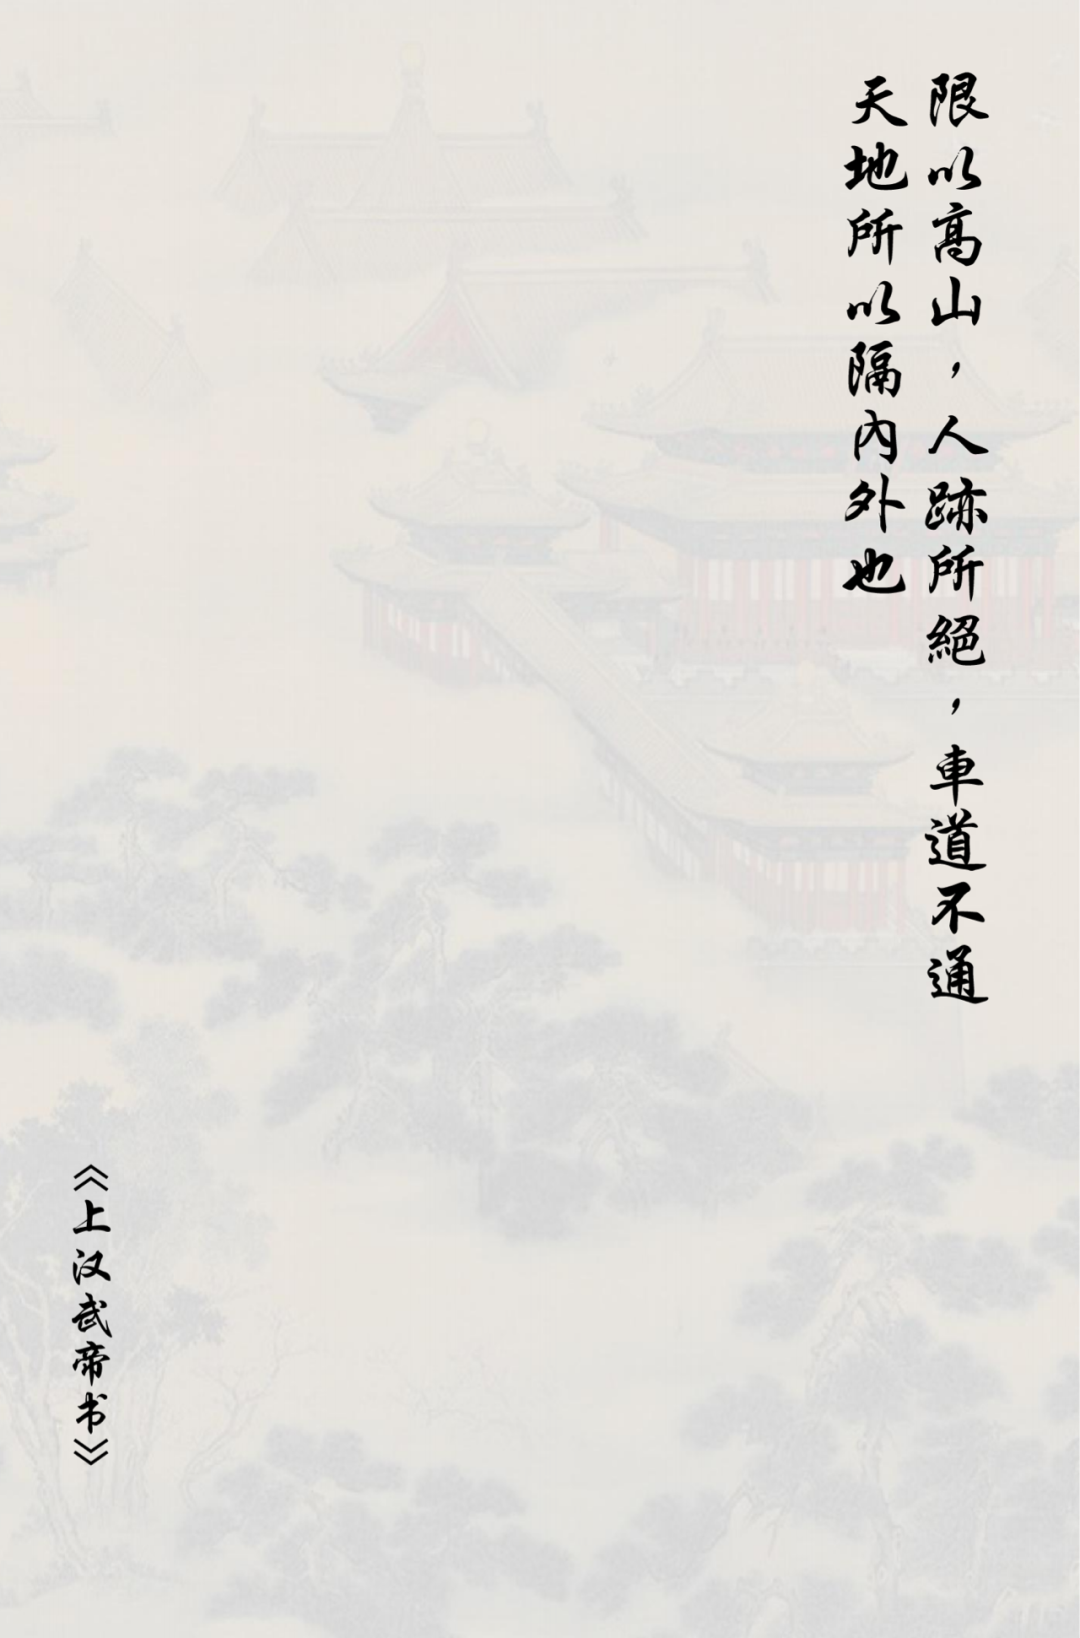 限以高山，人跡所絕，車道不通
天地所以隔內外也
《上汉武帝书》